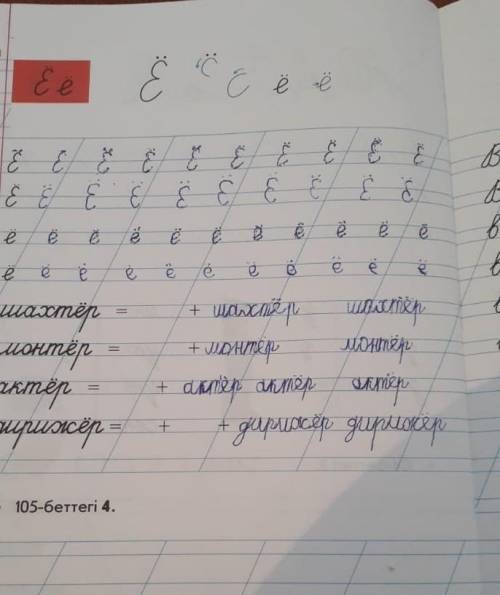 Ё ё Ё Ё Ё ё ё
Ё Ё Ё Ё Ё Ё Ё Ё Ё Ё
Ё Ё Ё Ё Ё Ё Ё Ё Ё Ё
ё ё ё ё ё ё ё ё ё ё ё
ё ё ё ё ё ё ё ё ё ё ё
шахтёр = + шахтёр шахтёр
монтёр = + монтёр монтёр
актёр = + актёр актёр актёр
дирижёр = + + дирижёр дирижёр
105-беттегі 4.